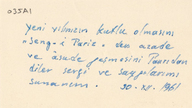 035A1
Yeni yılınızın kutlu olmasını
"Seng-i Paris" den azade
ve asude geçmesini Tanrıdan
diler sevgi ve saygılarımı
sunarım. 30.XII.1961